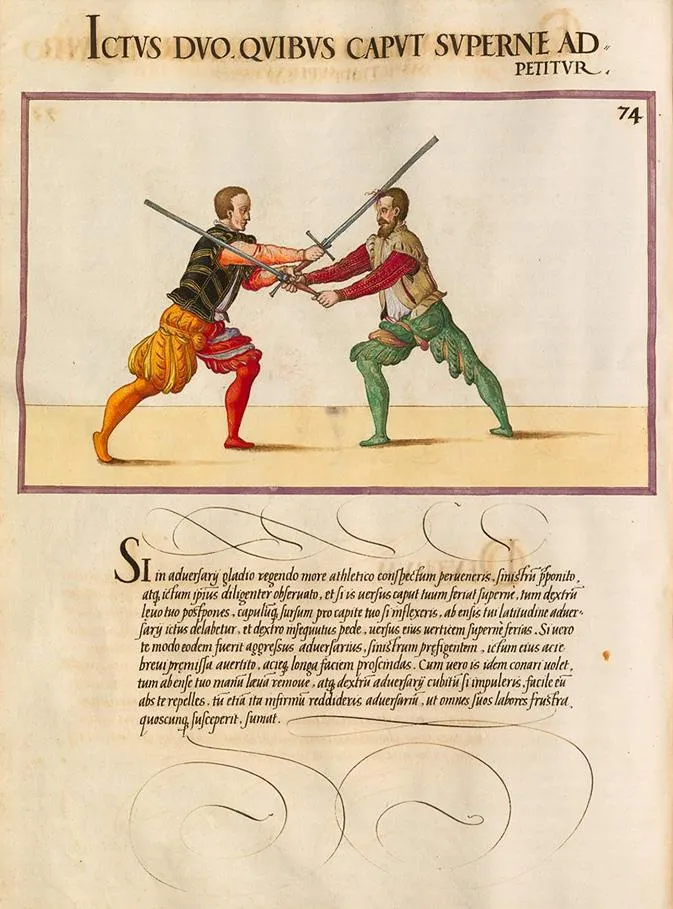 ICTVS DVO. QVIBVS CAPVT SVPERNE AD
PETITVR.
74
SI in adversarij gladio regendo more athletico conspectum perveneris, sinistrũ p̃ponito,
atq, ictum ipsius diligenter observato, et si is versus caput tuum feriat superne, tum dextrũ
levo tuo postpones, capulũq, sursum pro capite tuo si inflexeris, ab ensis tui latitudine adver-
sarij ictus delabetur, et dextro insequutus pede, versus eius verticem supernè ferias. Si vero
te modo eodem fuerit aggressus adversarius, sinistrum prefigentem, ictum eius acie
brevi premissa avertito, acieq, longa faciem proscindas. Cum vero is idem conari volet,
tum ab ense tuo manũ laevã remove, atq, dextrũ adversarij cubitũ si impuleris, facile eũ
abs te repelles, tũ etiã ita infirmũ reddideris adversariũ, ut omnes suos labores frustra,
quoscunq, susceperit, sumat.